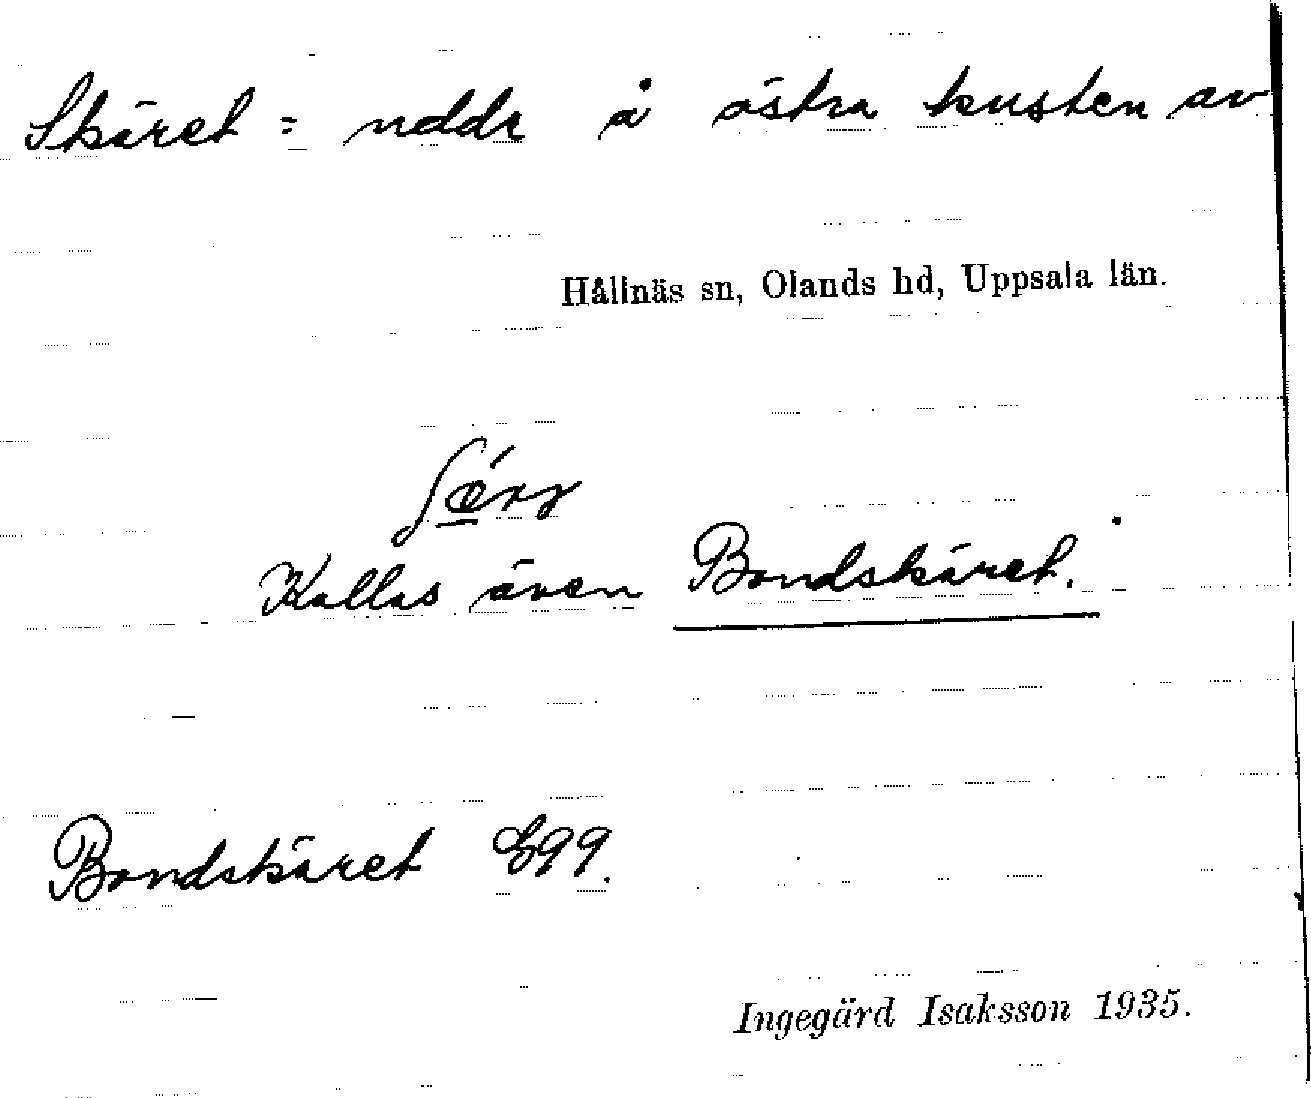 Skäret = udde å östra kusten av
Hållnäs sn, Olands hd, Uppsala län.
Kallas även Bondskäret.
Bondskäret E99.
Ingegärd Isaksson 1935.